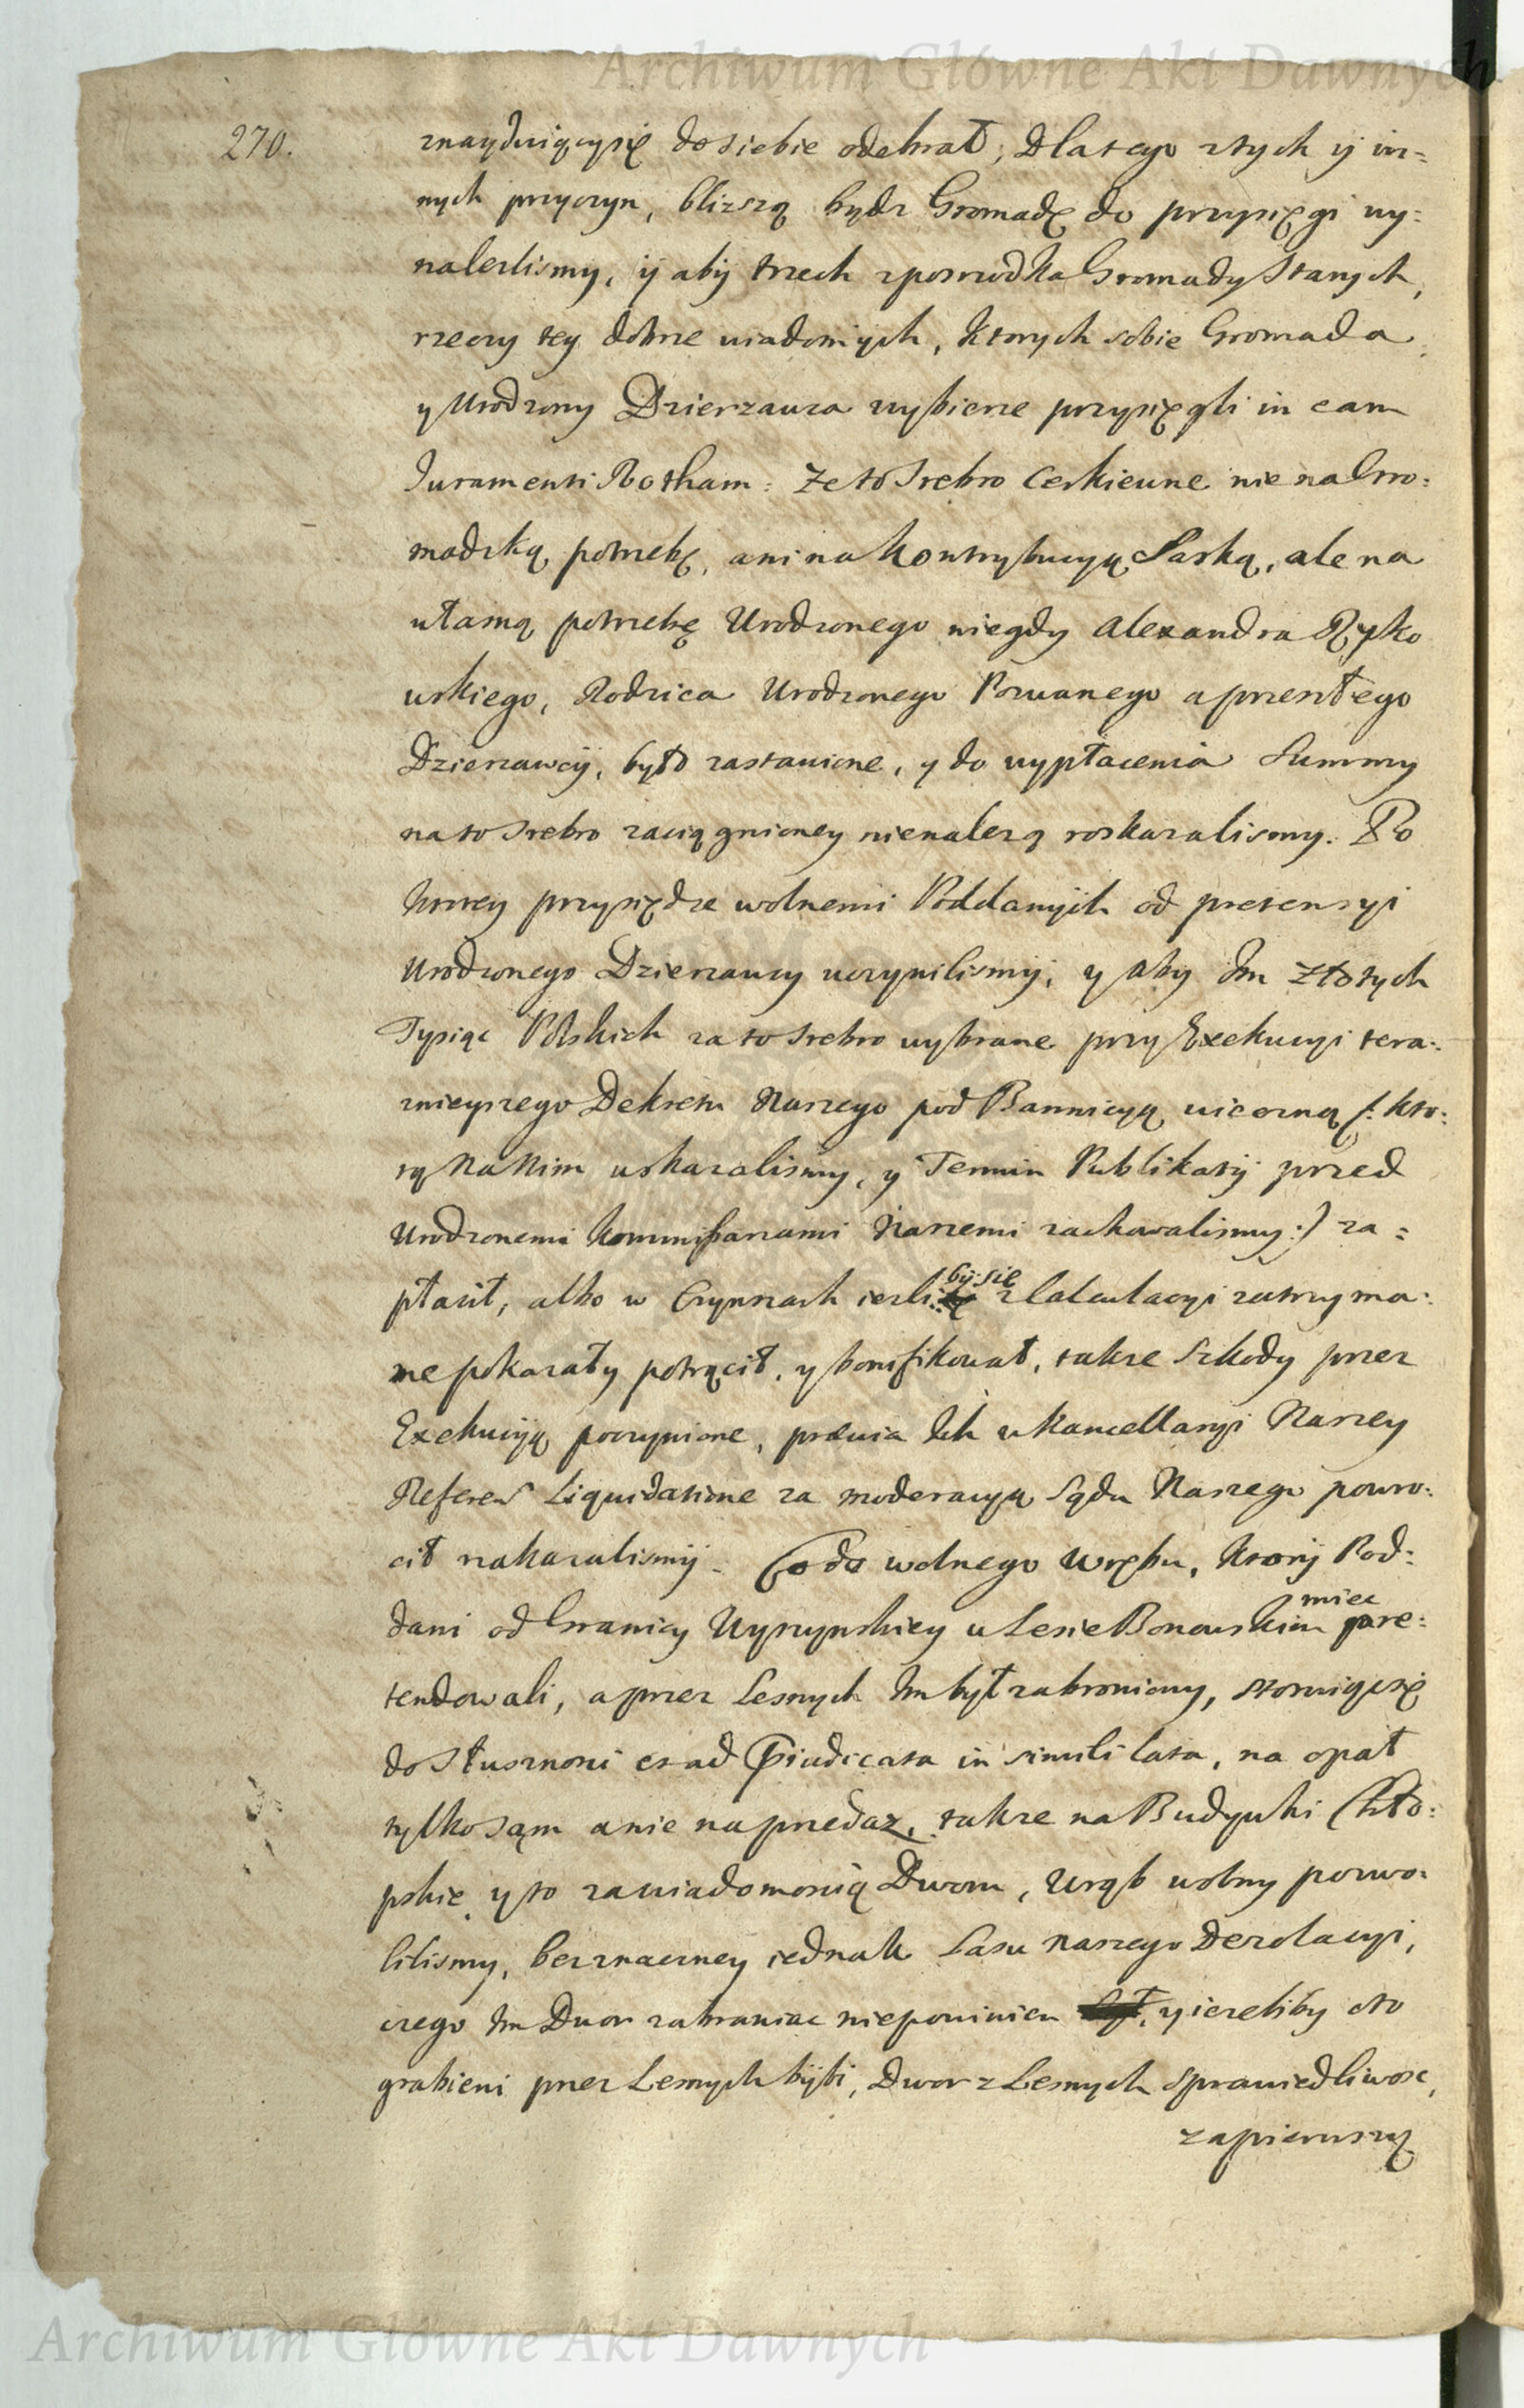 Archiwum Główne Akt Dawnych
270.
znayduiącysię dosiebie odebrał; Dlatego ztych ÿ in=
nych przyczyn, blizszą bydz Gromadę do przysięgi wy=
nalezlismy, ÿ abÿ trzech zposrodka Gromady Starych,
rzeczy tey dobrze wiadomych, ktorych sobie Gromada
y Urodzony Dzierzawca wybierze przysięgli in eam
Juramenti Rotham: Ze to Srebro Cerkiewne nie na Gro=
madzką potrzebę, ani na Kontrybucyą Saską, ale na
własną potrzebę Urodzonego niegdy Alexandra Rypko
wskiego, Rodzica Urodzonego Pozwanego a przeszłego
Dzierzawcÿ, było zastawione, y do wypłacenia Summy
na to Srebro zaciągnioney nienalezą roskazalismy. Po
ktorey przysiędze wolnemi Poddanÿch od pretensyi
Urodzonego Dzierzawcy uczynilismÿ, y aby Im Złotych
Tysiąc Polskich za to Srebro wybrane przy Exekucyi tera=
znieyszego Dekretu Naszego pod Bannicyą wieczną /: kto=
rą Na Nim wskazalismy, y Termin Publikatÿ przed
Urodzonemi Kommissarzami Naszemi zachowalismy:/ za=
płacił, albo w Czynszach iezli by się z Calculacyi zatrzyma=
ne pokazały potrącił, y bonifikował, takze Szkody przez
Exekucÿą poczynione, prævia Ich w Kancellaryi Naszey
Referen Liquidatione za moderacyą Sądu Naszego powro=
cił nakazalismÿ. Co do wolnego Wrębu, ktorÿ Pod=
dani od Granicy Wyszynskiey w Lesie Bonowskim miec pre=
tendowali, a przez Lesnych Im był zabroniony, stosuiąc się
do Słusznosci et ad Præiudicata in simili lata, na opał
tylko sąm a nie na przedaz, takze na Budynki Chło=
pskie, y to zawiadomosią Dworu, Wrąb wolny pozwo=
lilismy, bez znaczney iednak Lasu naszego Dezolacyi,
czego Im Dwor zabraniac niepowinien, y iezeliby oto
grabieni przez Lesnych bÿli, Dwor z Lesnych Sprawiedliwosc,
zapierwszą
Archiwum Główne Akt Dawnych